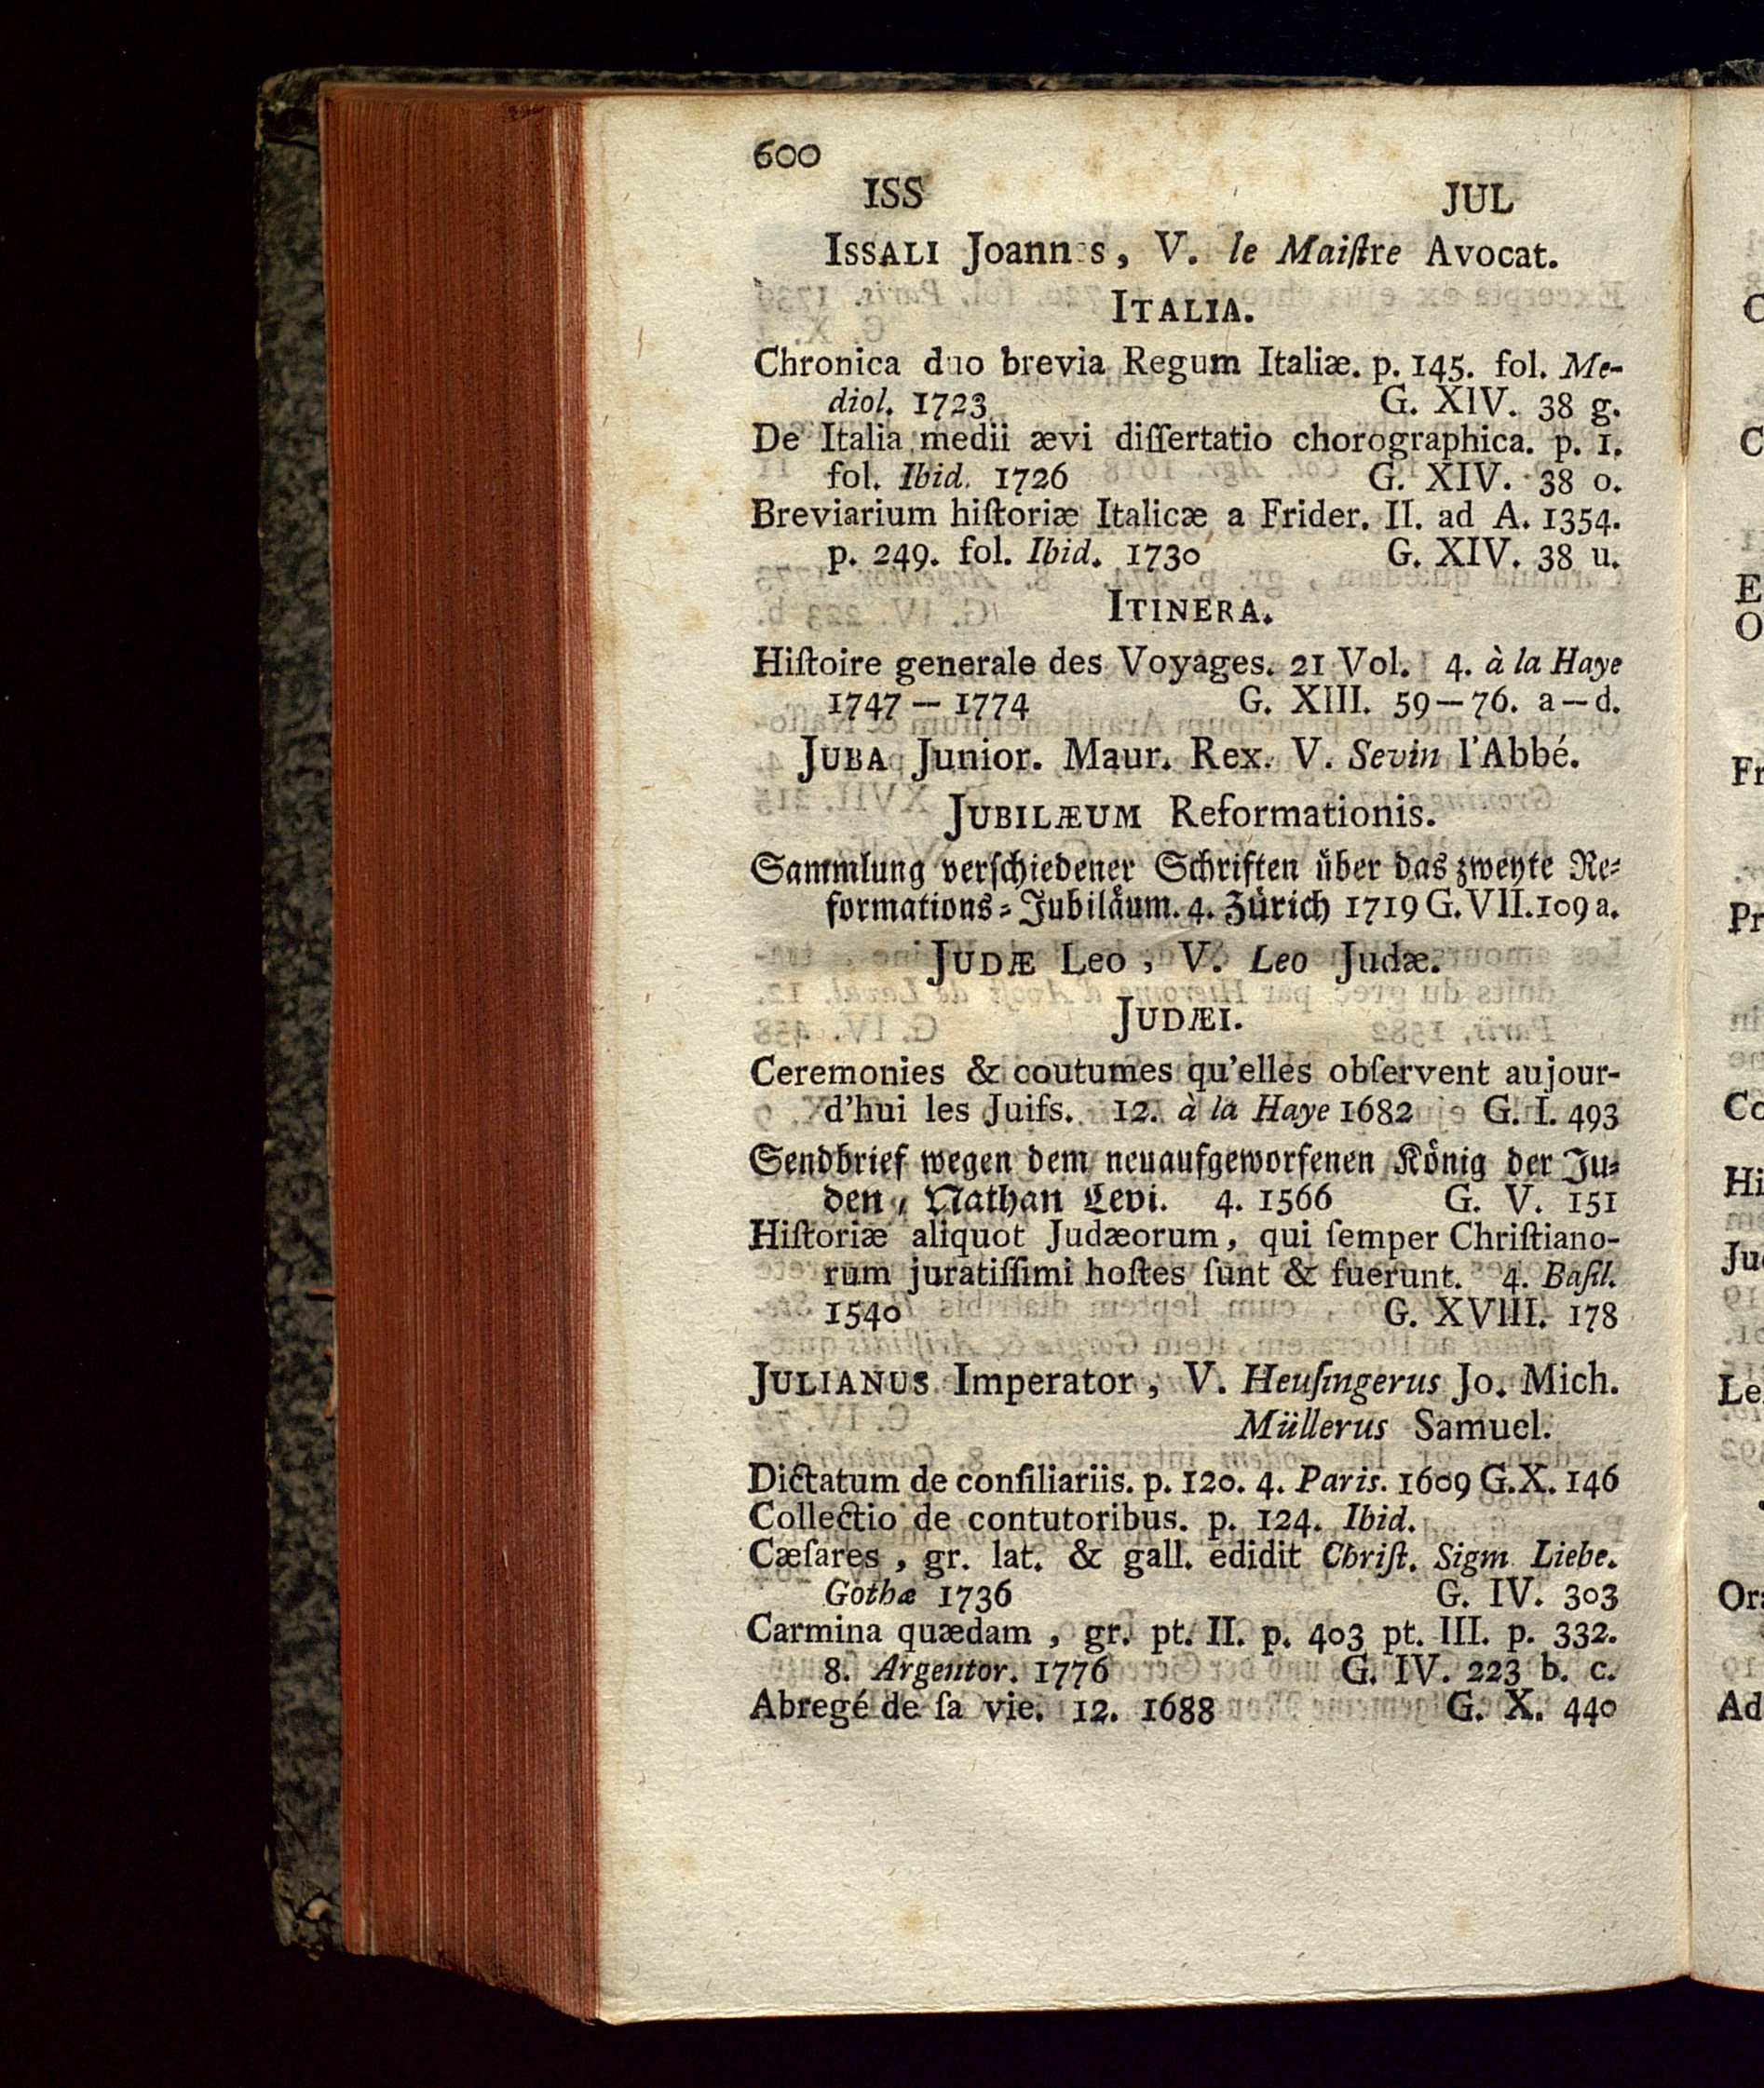 600
ISS JUL
ISSALI Joann s, V. le Maiſtre Avocat.
ITALIA.
Chronica duo brevia Regum Italiæ. p. 145. fol. Me-
diol. 1723 G. XIV. 38 g.
De Italia medii ævi diſſertatio chorographica. p. 1.
fol. Ibid. 1726 G. XIV. 38 o.
Breviarium hiſtoriæ Italicæ a Frider. II. ad A. 1354.
p. 249. fol. Ibid. 1730 G. XIV. 38 u.
ITINERA.
Hiſtoire generale des Voyages. 21 Vol. 4. à la Haye
1747 — 1774 G. XIII. 59—76. a—d.
JUBA Junior. Maur. Rex. V. Sevin l'Abbé.
JUBILÆUM Reformationis.
Sammlung verſchiedener Schriften über das zweyte Re⸗
formations⸗Jubiläum. 4. Zürich 1719 G. VII. 109 a.
JUDÆ Leo, V. Leo Judæ.
JUDÆI.
Ceremonies & coutumes qu'elles obſervent aujour-
d'hui les Juifs. 12. à la Haye 1682 G. I. 493
Sendbrief wegen dem neuaufgeworfenen König der Ju⸗
den, Nathan Levi. 4. 1566 G. V. 151
Hiſtoriæ aliquot Judæorum, qui ſemper Chriſtiano-
rum juratiſſimi hoſtes ſunt & fuerunt. 4. Baſil.
1540 G. XVIII. 178
JULIANUS Imperator, V. Heuſingerus Jo. Mich.
Müllerus Samuel.
Dictatum de conſiliariis. p. 120. 4. Paris. 1609 G. X. 146
Collectio de contutoribus. p. 124. Ibid.
Cæſares, gr. lat. & gall. edidit Chriſt. Sigm Liebe.
Gothæ 1736 G. IV. 303
Carmina quædam, gr. pt. II. p. 403 pt. III. p. 332.
8. Argentor. 1776 G. IV. 223 b. c.
Abregé de ſa vie. 12. 1688 G. X. 440